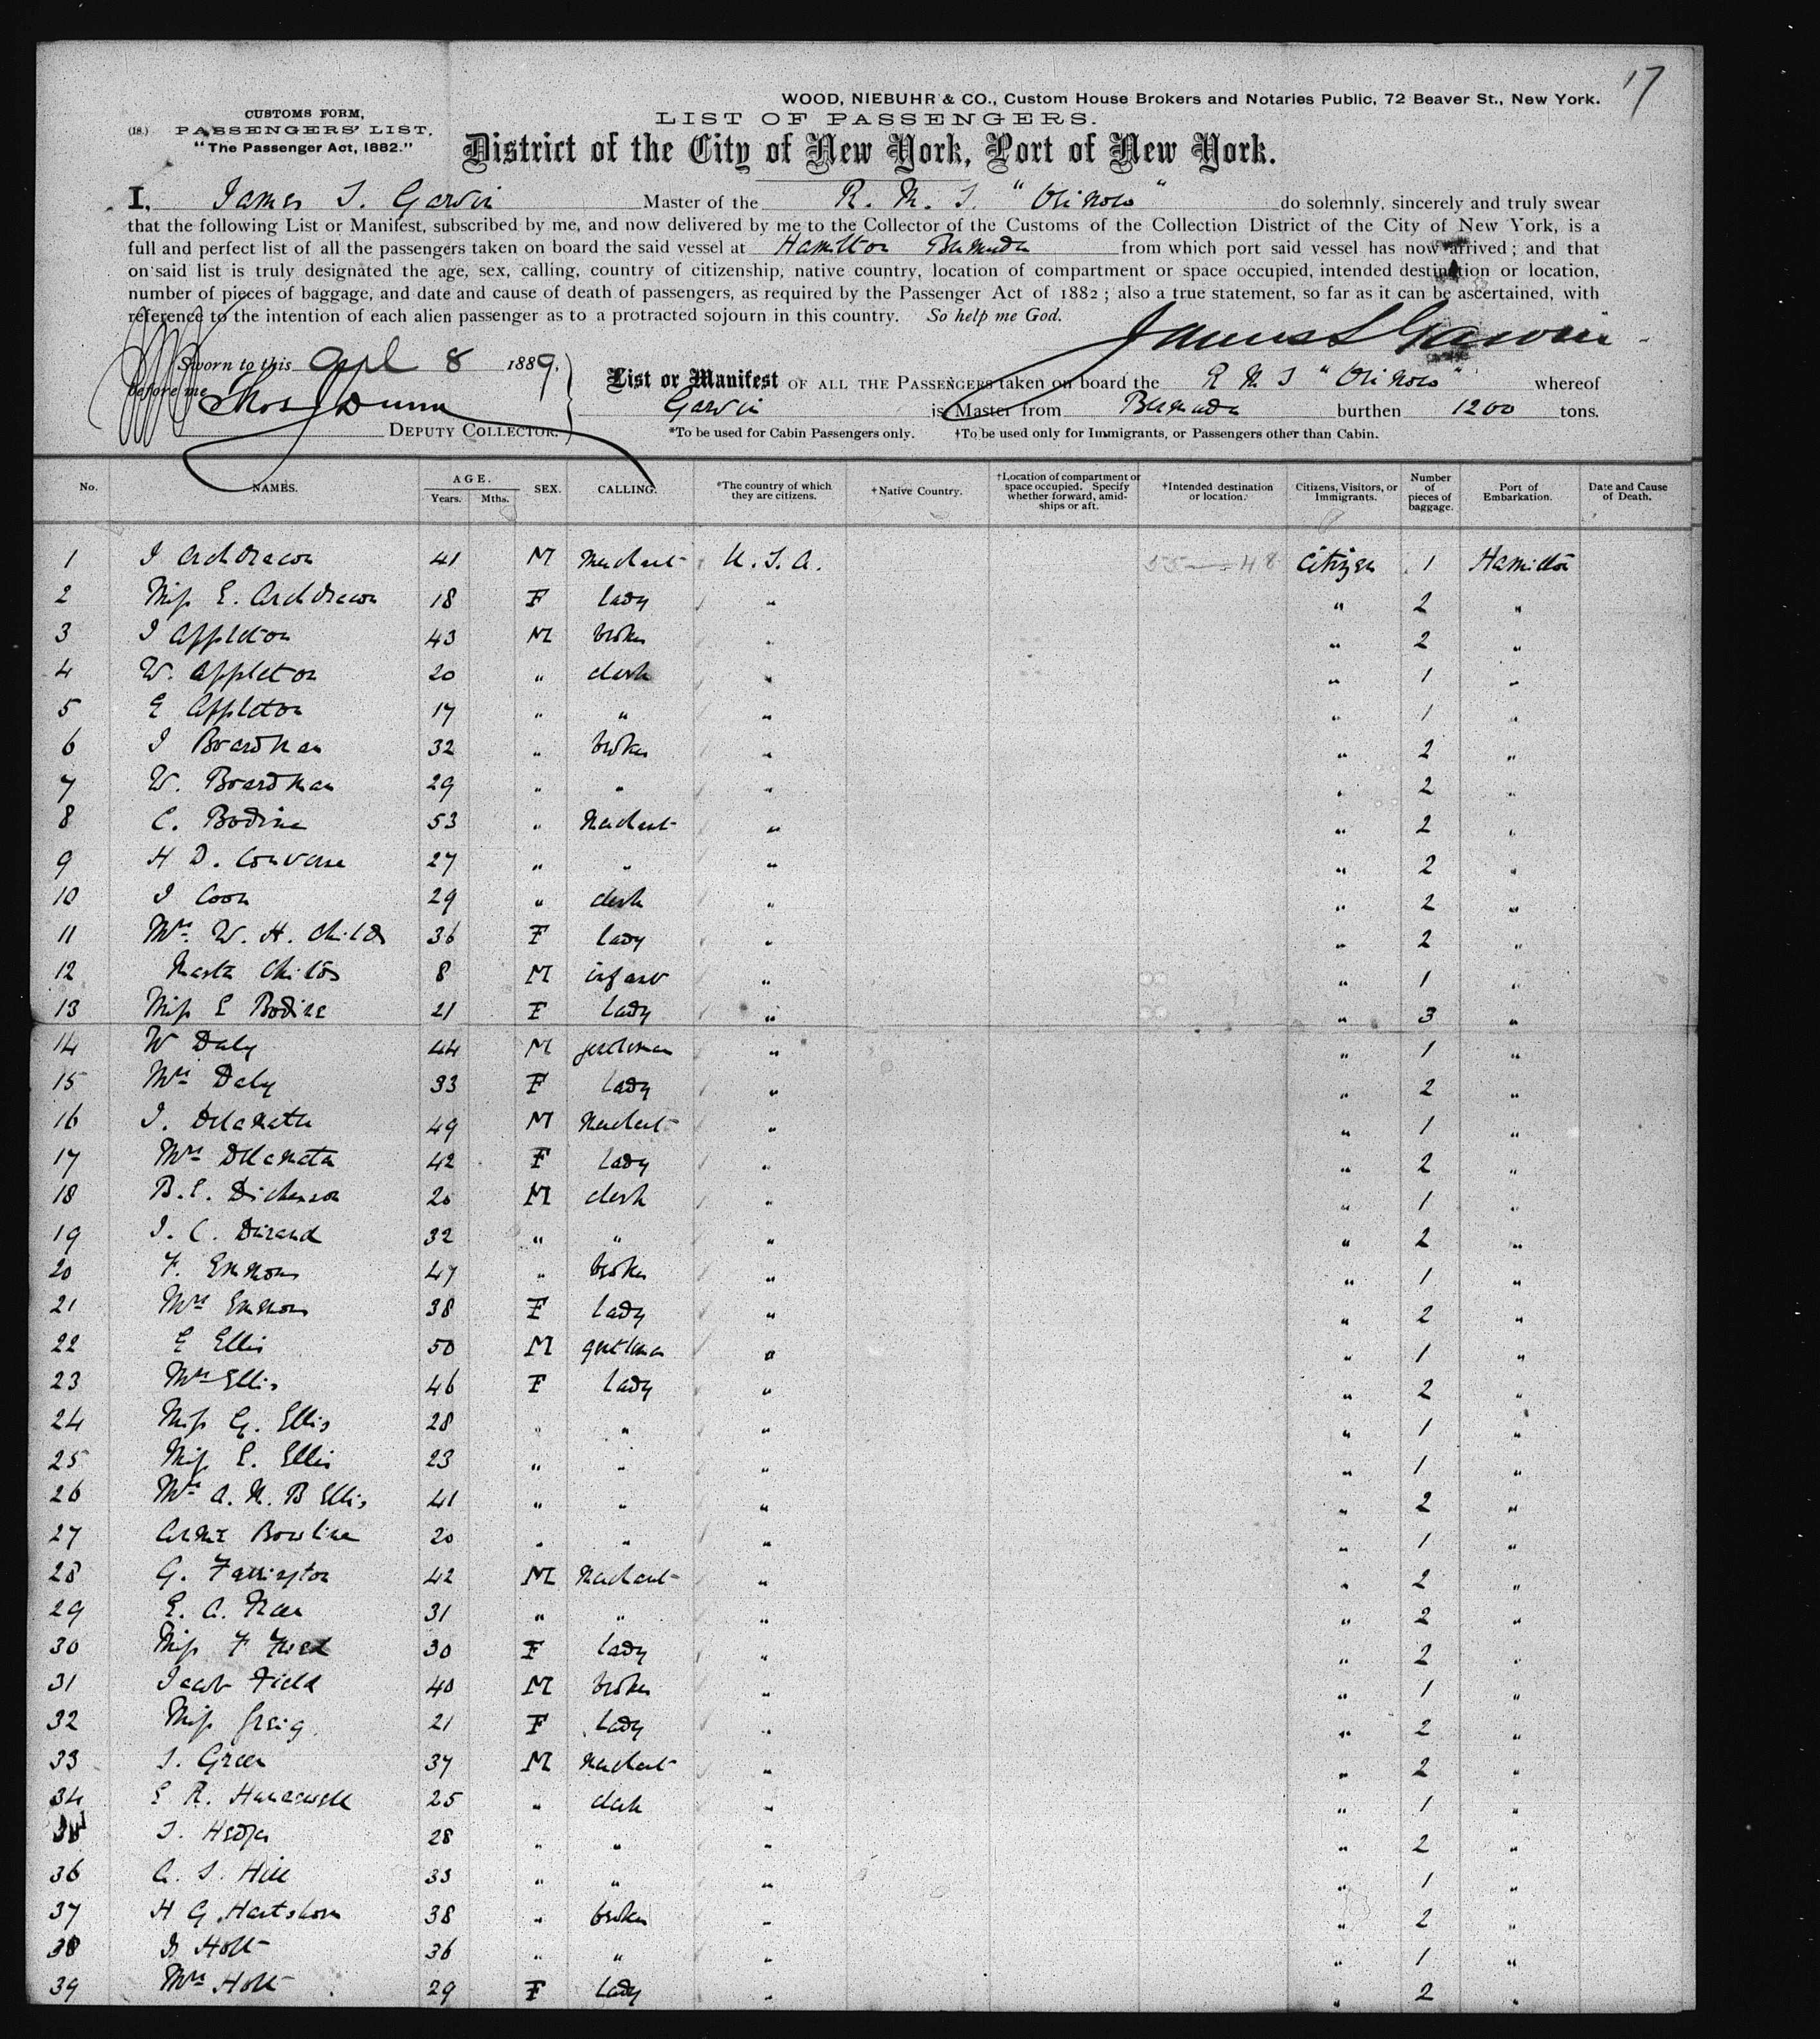 17
WOOD, NIEBUHR & CO., Custom House Brokers and Notaries Public, 72 Beaver St., New York.
CUSTOMS FORM,
LIST OF PASSENGERS.
(18.) PASSENGERS' LIST,
"The Passenger Act, 1882."
District of the City of New York, Port of New York.
I, James S. Garvin Master of the R. M. S. "Orinoco" do solemnly, sincerely and truly swear
that the following List or Manifest, subscribed by me, and now delivered by me to the Collector of the Customs of the Collection District of the City of New York, is a
full and perfect list of all the passengers taken on board the said vessel at Hamilton Bermuda from which port said vessel has now arrived; and that
on said list is truly designated the age, sex, calling, country of citizenship, native country, location of compartment or space occupied, intended destination or location,
number of pieces of baggage, and date and cause of death of passengers, as required by the Passenger Act of 1882; also a true statement, so far as it can be ascertained, with
reference to the intention of each alien passenger as to a protracted sojourn in this country. So help me God.
James S Garvin
Sworn to this April 8 1889.
before me
Thos J Dunn
DEPUTY COLLECTOR.
List or Manifest OF ALL THE PASSENGERS taken on board the R M S "Orinoco" whereof
Garvin is Master from Bermuda burthen 1200 tons.
*To be used for Cabin Passengers only. †To be used only for Immigrants, or Passengers other than Cabin.
No. NAMES. AGE. Years. Mths. SEX. CALLING. *The country of which they are citizens. †Native Country. †Location of compartment or space occupied. Specify whether forward, amidships or aft. †Intended destination or location. Citizens, Visitors, or Immigrants. Number of pieces of baggage. Port of Embarkation. Date and Cause of Death.
1 J Archdeacon 41 M Merchant U. S. A. 55 — 48 Citizen 1 Hamilton
2 Miss E. Archdeacon 18 F Lady " " 2 "
3 J Appleton 43 M broker " " 2 "
4 W. Appleton 20 " clerk " " 1 "
5 E Appleton 17 " " " " 1 "
6 J Boardman 32 " broker " " 2 "
7 W. Boardman 29 " " " " 2 "
8 C. Bodine 53 " Merchant " " 2 "
9 H D. Converse 27 " " " " 2 "
10 J Coon 29 " clerk " " 2 "
11 Mrs. W. H. Childs 36 F Lady " " 2 "
12 Mastr Childs 8 M infant " " 1 "
13 Miss E Bodine 21 F Lady " " 3 "
14 W Daly 44 M gentleman " " 1 "
15 Mrs Daly 33 F Lady " " 2 "
16 J. Delamater 49 M Merchant " " 1 "
17 Mrs Delamater 42 F Lady " " 2 "
18 B. E. Dickinson 20 M clerk " " 1 "
19 J. C. Durand 32 " " " " 2 "
20 F. Emmons 47 " broker " " 1 "
21 Mrs Emmons 38 F Lady " " 2 "
22 E Ellis 50 M gentleman " " 1 "
23 Mrs Ellis 46 F Lady " " 2 "
24 Miss G. Ellis 28 " " " " 1 "
25 Miss E. Ellis 23 " " " " 1 "
26 Mrs A. M. B Ellis 41 " " " " 2 "
27 Annie Bowline 20 " " " " 1 "
28 G. Farrington 42 M Merchant " " 2 "
29 E. A. 31 " " " " 2 "
30 Miss F 30 F Lady " " 2 "
31 Jacob Field 40 M broker " " 1 "
32 Miss Greig 21 F Lady " " 2 "
33 J. Green 37 M Merchant " " 2 "
34 E R. Hunnewell 25 " clerk " " 1 "
35 J. Hedge 28 " " " " 2 "
36 A. S. Hill 33 " " " " 1 "
37 H G. Hartshorn 38 " broker " " 2 "
38 Holt 36 " " " " 1 "
39 Mrs Holt 29 F Lady " " 2 "